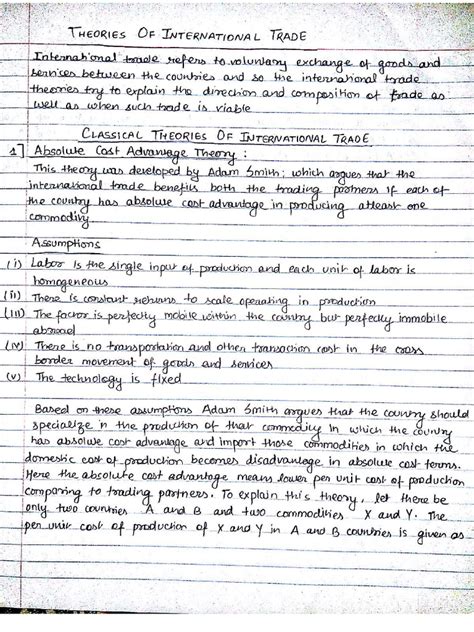 THEORIES OF INTERNATIONAL TRADE
International trade refers to voluntary exchange of goods and
services between the countries and so the international trade
theories try to explain the direction and composition of trade as
well as when such trade is viable
CLASSICAL THEORIES OF INTERNATIONAL TRADE
1] Absolute Cost Advantage Theory :
This theory was developed by Adam Smith; which argues that the
international trade benefits both the trading partners if each of
the country has absolute cost advantage in producing atleast one
commodity
Assumptions
(i) Labor is the single input of production and each unit of labor is
homogeneous
(ii) There is constant returns to scale operating in production
(iii) The factor is perfectly mobile within the country but perfectly immobile
abroad
(iv) There is no transportation and other transaction cost in the cross
border movement of goods and services
(v) The technology is fixed
Based on these assumptions Adam Smith argues that the country should
specialize in the production of that commodity in which the country
has absolute cost advantage and import those commodities in which the
domestic cost of production becomes disadvantage in absolute cost terms.
Here the absolute cost advantage means lower per unit cost of production
comparing to trading partners. To explain this theory, let there be
only two countries A and B and two commodities X and Y. The
per unit cost of production of X and Y in A and B countries is given as